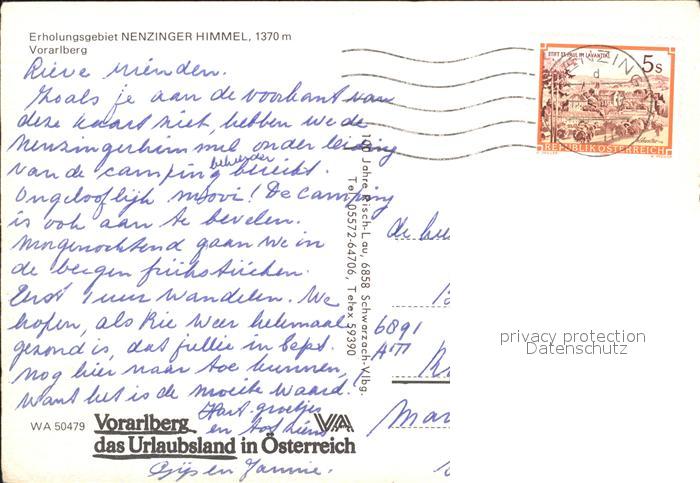 Erholungsgebiet NENZINGER HIMMEL, 1370 m
Vorarlberg
Lieve vrienden.
Zoals je aan de voorkant van
deze kaart ziet, hebben we de
Nenzingerhimmel onder leiding
van de camping beheerder bereikt.
Ongelooflijk mooi! De camping
is ook aan te bevelen.
Morgenochtend gaan we in
de bergen frühstücken.
Eerst 1 uur wandelen. We
hopen, als Rie weer helemaal
gezond is, dat jullie in Sept.
nog hier naar toe kunnen,
want het is de moeite waard.
Hart. groetjes
en tot ziens
Gijs en Jannie.
WA 50479
Vorarlberg
das Urlaubsland in Österreich
VA
100 Jahre Risch-Lau, 6858 Schwarzach-Vlbg.
Tel. 05572-64706, Telex 59390
STIFT ST. PAUL IM LAVANTTAL
5 S
REPUBLIK ÖSTERREICH
NENZING
d
6891
privacy protection
Datenschutz